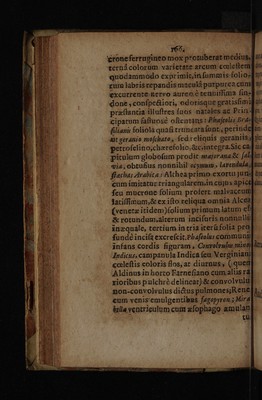 166.
crone ferruginto mox protuberat medius,
ternâ colorum varietate arcum cœlestem
quodammodo exprimit, in summis folio-
rum labris repandis maculâ purpurea cum
excurrente nervo aureo è tenuissima sin-
done, conspectiori, odorisque gratissimi
præstantia illustres suos natales ac Prin-
cipatum fastumque ostentans. Phaseolus Bra-
silianis foliola quasi truncata sunt, perinde
ut geranio moschato, sed reliquis geraniis,
petroselino, chærefolio, & integra. Sic ca-
pitulum globosum prodit majorana & sal-
via, obtusius nonnihil ocymum,
stachas Arabica: Althea primo exortu jun-
cum imitatur triangularem, in cujus apice
seu mucrone folium profert malvaceum
latissimum, & ex isto reliqua omnia Alceæ
(venetæ itidem) folium primum latum est
& rotundum, alterum incisuris nonnihil
inæquale, tertium in tria iterû folia pro
funde incisû excrescit. Phaseolus communis
infans cordis figuram, Convolvulus minor
Indicus, campanula Indica seu Verginiana
cœlestis coloris flos, ac diurnus, (quem
Aldinus in horto Farnesiano cum altis ra
rioribus pulchrè delineat) & convolvulus
non-convolvulus dictus pulmones; Renes
cum venis emulgentibus fagopyron; Mira
bilia ventriculum cum æsophago amulan
tu